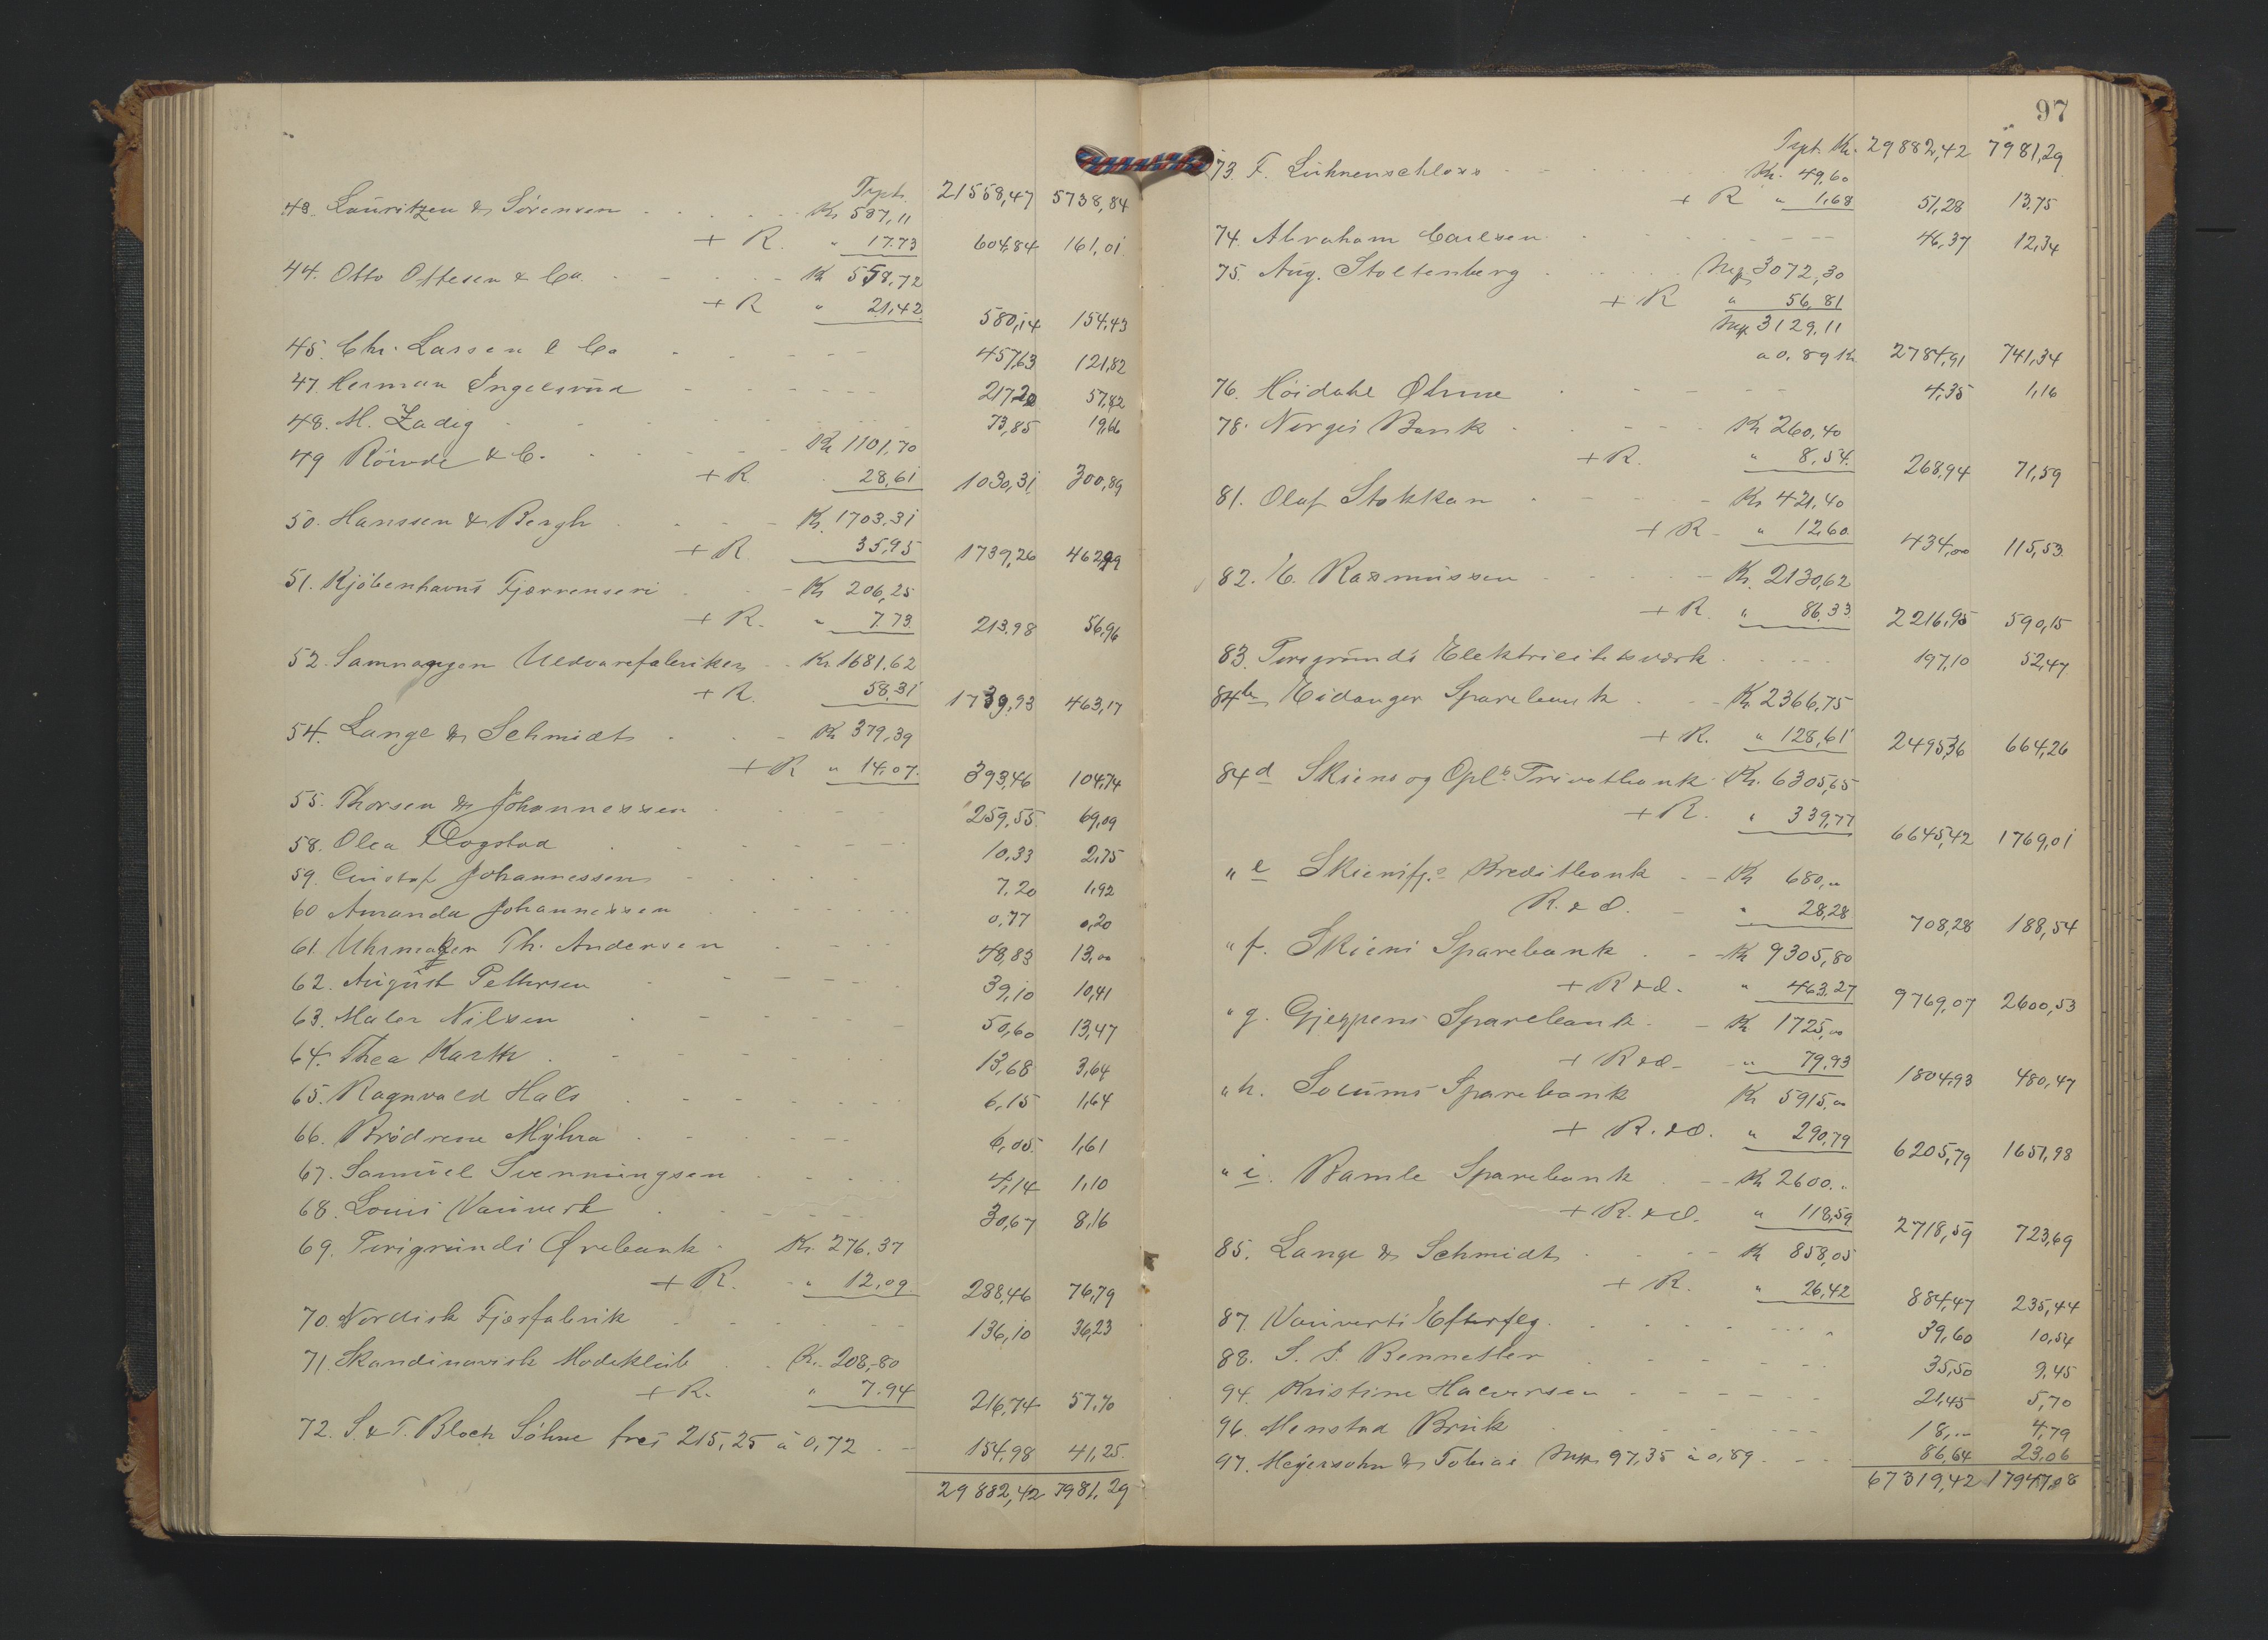 Trpt. 21558,47 5738,84
43. Lauritzen & Sörensen Kr 587,11
+ R. " 17.73 604,84 161,01
44. Otto Ottesen & Co. Kr 558,72
+ R " 21,42 580,14 154,43
45. Chr. Larsen & Co 457,63 121,82
47. Herman Ingelsrud 217,20 57,82
48. M. Zadig 73,85 19,66
49 Röwde & C. Kr 1101,70
+ R. 28,61 1030,31 300,89
50. Hanssen & Bergh Kr. 1703.31
+ R. 35,95 1739,26 462,99
51. Kjöbenhavns Fjærrenseri Kr 206,25
+ R. " 7.73. 213,98 56,96
52. Samnangen Uldvarefabriker Kr. 1681.62
+ R. 58.31 1739,93 463,17
54. Lange & Schmidt Kr 379,39
+ R " 14,07. 393,46 104,74
55. Thorsen & Johannessen 259,55 69,09
58. Olea Dogstad 10,33 2,75
59. Gustaf Johannessen 7,20 1,92
60 Amanda Johannessen 0,77 0,20
61. Uhrmaker Th. Andersen 48,83 13,00
62. August Pettersen 39,10 10,41
63. Maler Nilsen 50,60 13,47
64. Thea Karth 13,68 3,64
65. Ragnvald Hals 6,15 1,64
66. Brödrene Myhra 6,05 1,61
67. Samuel Svenningsen 4,14 1,10
68. Louis Vauvert 30,67 8,16
69. Porsgrunds Örebank Kr. 276.37
+ R. " 12,09 288,46 76,79
70. Nordisk Fjærfabrik 136,10 36,23
71. Skandinavisk Modeklub Kr. 208,80
+ R. " 7.94 216,74 57,70
72. S & T. Bloch Söhne frcs 215,25 à 0,72 154,98 41,25.
29882,42 7981,29
97
Trpt. Kr. 29882,42 7981,29
73. F. Lühnenschloss Kr. 49,60
+ R " 1,68 51,28 13.75
74. Abraham Carlsen 46,37 12,34
75. Aug. Stoltenberg Mrk 3072,30
+ R " 56,81
Mrk 3129,11
a 0,89 Kr 2784,91 741,34
76. Höidahl Ohme 4,35 1,16
78. Norges Bank Kr 260,40
+ R. " 8,54. 268,94 71,59
81. Olaf Stokkan Kr 421,40
+ R " 12,60 434,00 115,53
82. C. Rasmussen Kr. 2130,62
+ R. " 86,33 2216,95 590,15
83. Porsgrunds Elektricitetsværk 197,10 52,47
84b Eidanger Sparebank Kr 2366,75
+ R. " 128,61 2495,36 664,26
84d Skiens og Opl.s Privatbank Kr. 6305,65
+ R. " 339,77 6645,42 1769,01
" e Skiensfj.s Kreditbank Kr 680,00
R. & O. " 28,28 708,28 188,54
" f. Skiens Sparebank Kr 9305,80
+ R & O. " 463,27 9769,07 2600,53
" g. Gjerpens Sparebank Kr 1725,00
+ R & O. " 79,93 1804,93 480,47
" h. Solums Sparebank Kr 5915,00
+ R. & O. " 290,79 6205,79 1651,98
" i. Bamle Sparebank Kr 2600."
+ R. & O. " 118,59 2718,59 723,69
85. Lange & Schmidt Kr 858,05
+ R. " 26,42 884,47 235,44
87. Vauverts Efterflg. 39,60 10,54
88. S. F. Bennetter 35,50 9,45
94. Kristine Halvorsen 21,45 5,70
96. Menstad Bruk 18,-- 4,79
97. Meyersohn & Tobias Mrk 97,35 à 0,89 86,64 23,06
67319,42 17947,08